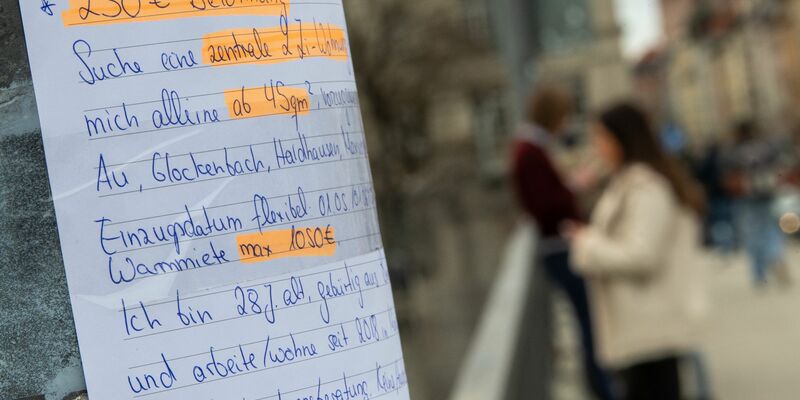 * 250€ Belohnung
Suche eine zentrale 2 Zi-Wohnung
mich alleine ab 45qm²,
Au, Glockenbach, Haidhausen,
Einzugsdatum flexibel 01.05
Warmmiete max 1050€
Ich bin 28 J. alt, gebürtig aus
und arbeite/wohne seit 2018